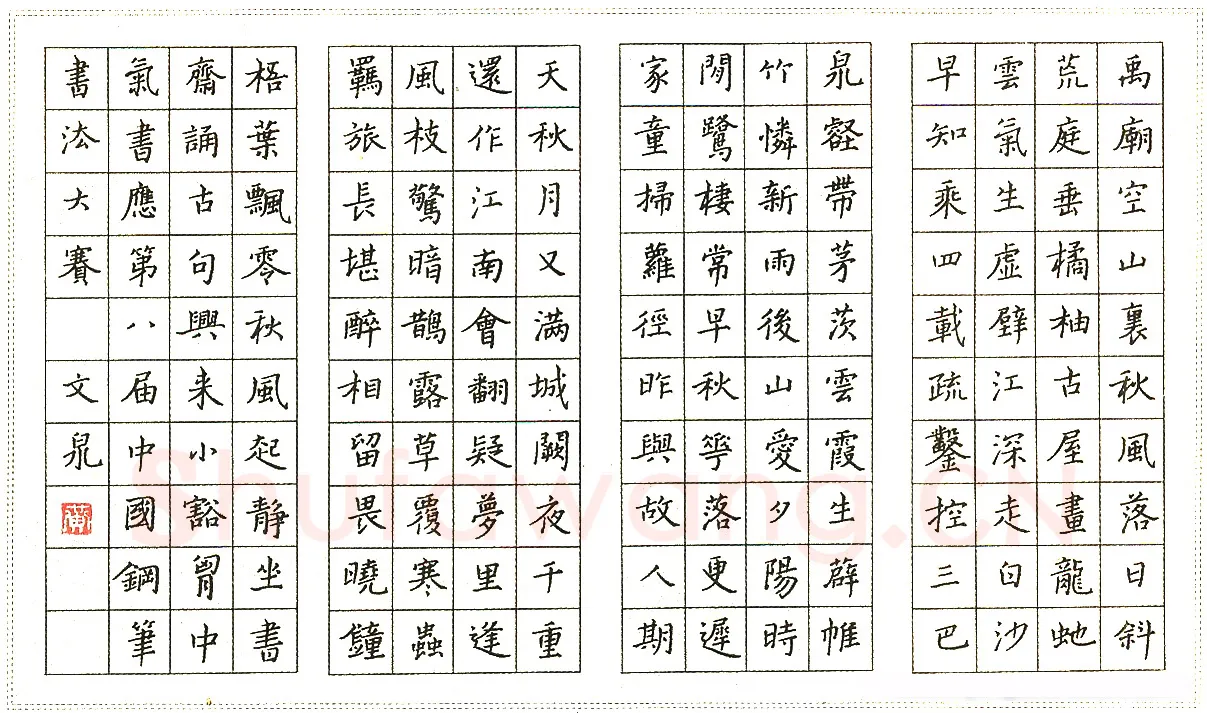 禹廟空山裏秋風落日斜
荒庭垂橘柚古屋畫龍虵
雲氣生虛壁江深走白沙
早知乘四載疏鑿控三巴
泉壑帶茅茨雲霞生薜帷
竹憐新雨後山愛夕陽時
閒鷺棲常早秋華落更遲
家童掃蘿徑昨與故人期
天秋月又满城闕夜千重
還作江南會翻疑夢里逢
風枝驚暗鵲露草覆寒蟲
羈旅長堪醉相留畏曉鐘
梧葉飄零秋風起静坐書
齋誦古句興来小豁胷中
氣書應第八届中國鋼筆
書法大賽 文泉
Shufawang.CN